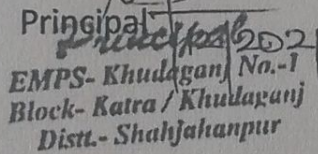 Principal
EMPS- Khudaganj No.-1
Block- Katra / Khudaganj
Distt.- Shahjahanpur